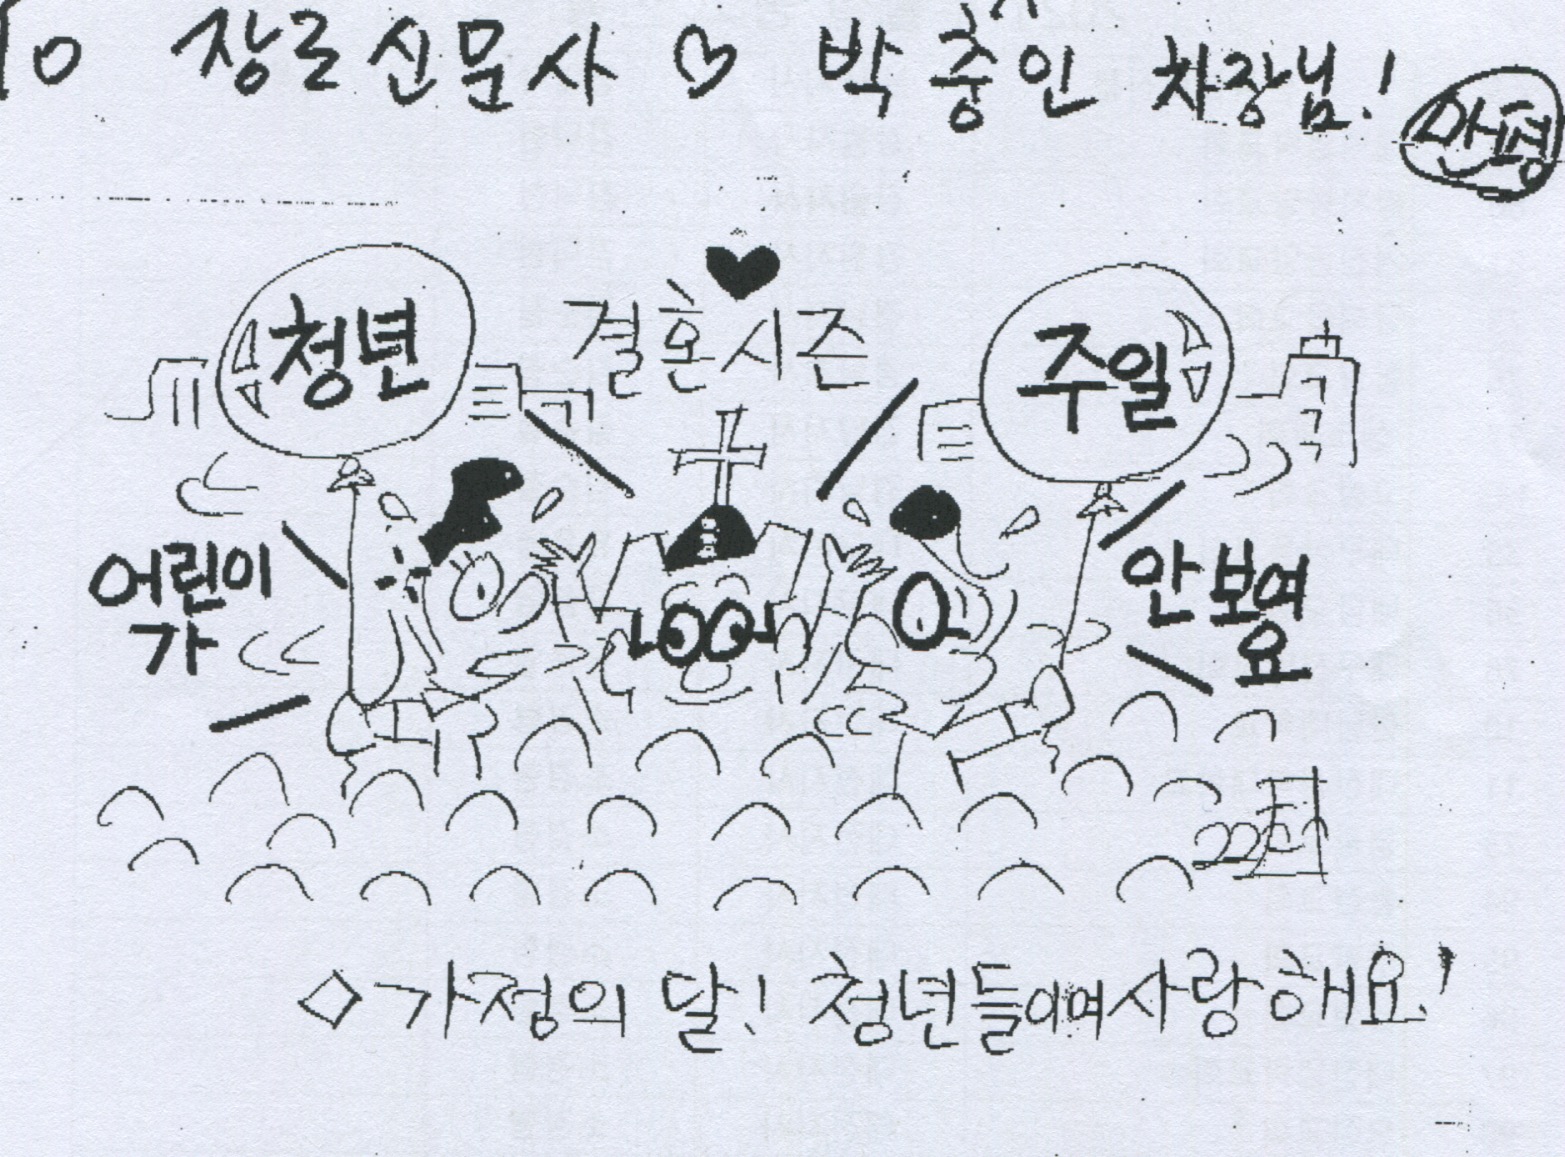 To 장로신문사 ♡ 박충인 차장님!
결혼시즌
청년
주일
어린이
가
안보여
요
◇가정의 달! 청년들이여사랑해요!